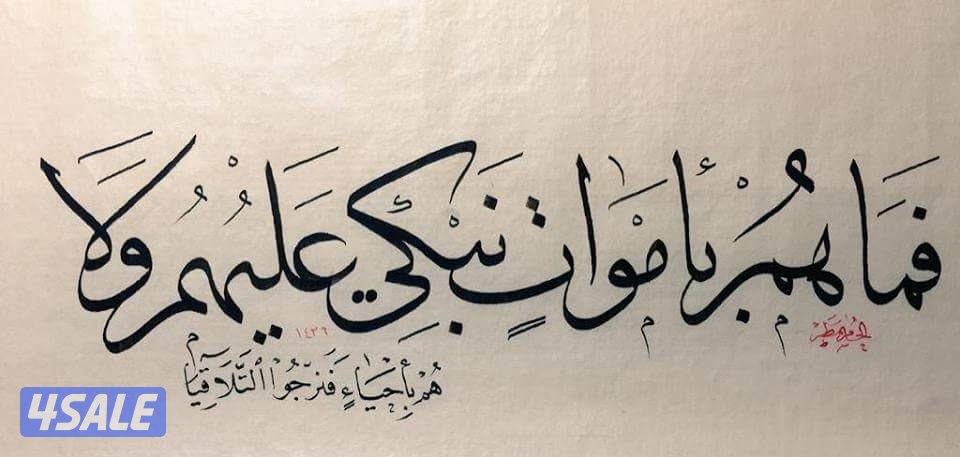 فَمَا هُمْ بِأَمْوَاتٍ نَبْكِي عَلَيْهُمُ وَلَا
١٤٣٦
هُمْ بِأَحْيَاءٍ فَنَرْجُوا ٱلتَّلَاقِيَا
4SALE